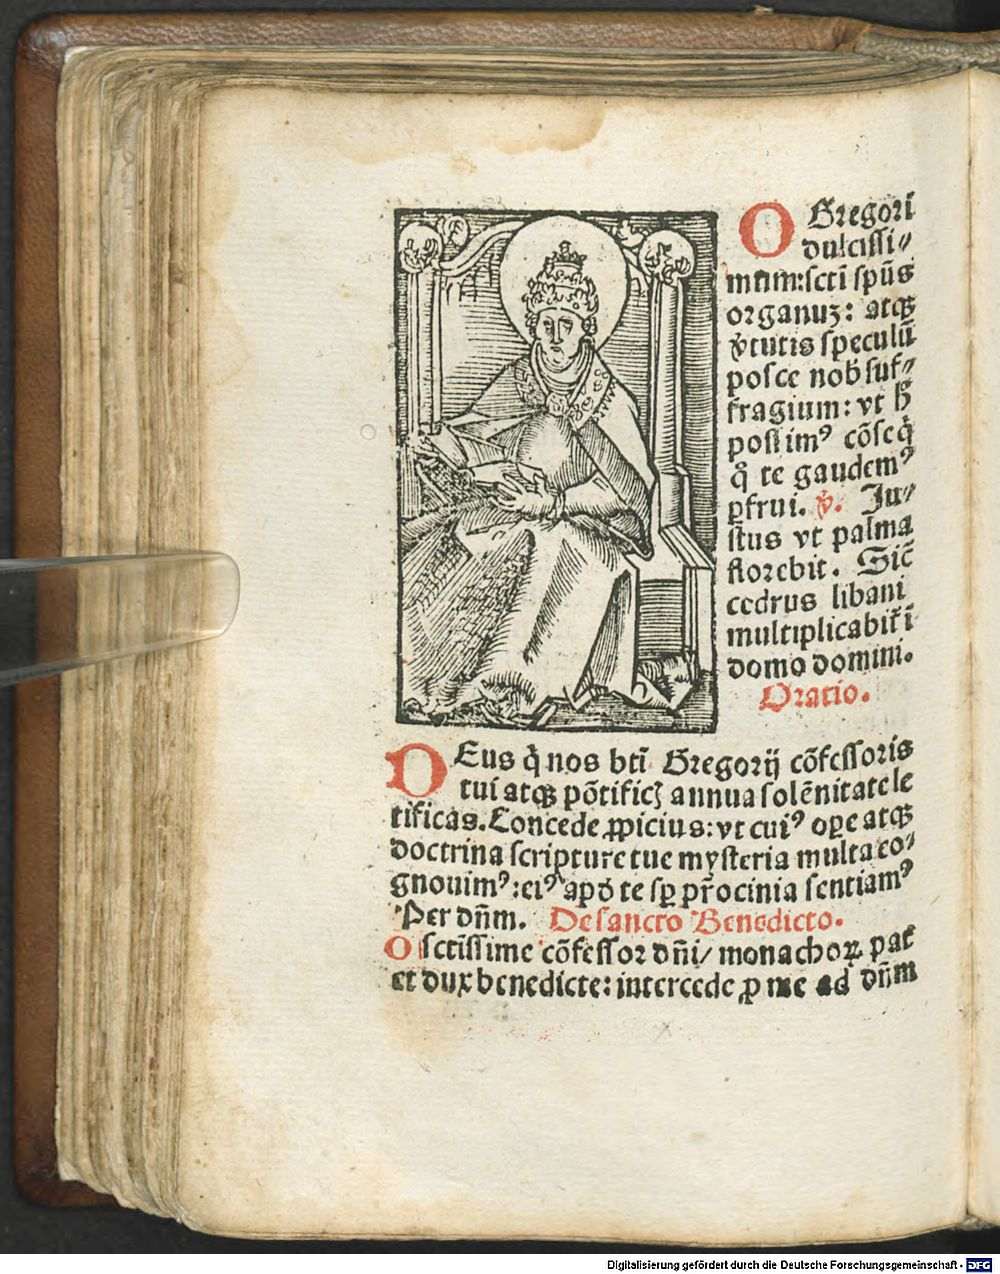 O Gregori
dulcissi⸗
mum:scti spūs
organuꝫ: atqꝫ
ꝟtutis speculū
posce nob̄ suf⸗
fragium: vt h̄
possimꝰ cōseq̇
q̊ te gaudemꝰ
ꝑfrui. ꝟ. Ju⸗
stus vt palma
florebit. Sic̄
cedrus libani
multiplicabit̄ ī
domo domini.
Oratio.
DEus q̇ nos bti Gregorij cōfessoris
tui atqꝫ pōtificꝭ annua solēnitate le
tificas. Concede ꝓpicius: vt cuiꝰ oꝑe atqꝫ
doctrina scripture tue mysteria multa co⸗
gnouimꝰ: eiꝰ apd̄ te sꝑ pr̄ocinia sentiamꝰ
Per dn̄m. De sancto Benedicto.
O sctissime cōfessor dn̄i/ monachoꝝ pat̄
et dux benedicte: intercede ꝓ me ad dn̄m
Digitalisierung gefördert durch die Deutsche Forschungsgemeinschaft - DFG